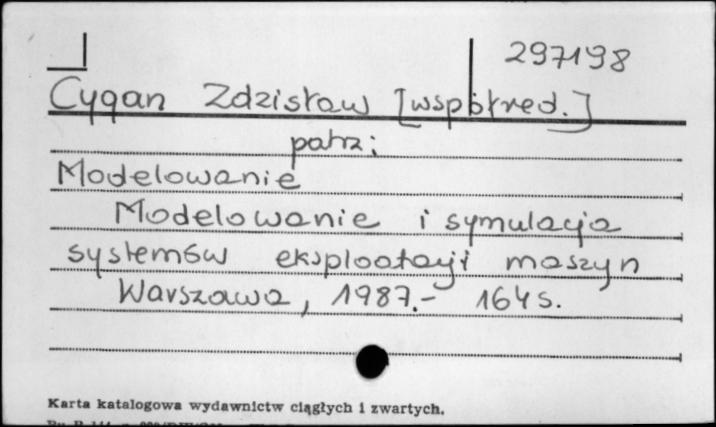 297198
Cygan Zdzisław [współred.]
patrz:
Modelowanie
Modelowanie i symulacja
systemów eksploatacji maszyn
Warszawa, 1987.- 164 s.
Karta katalogowa wydawnictw ciągłych i zwartych.